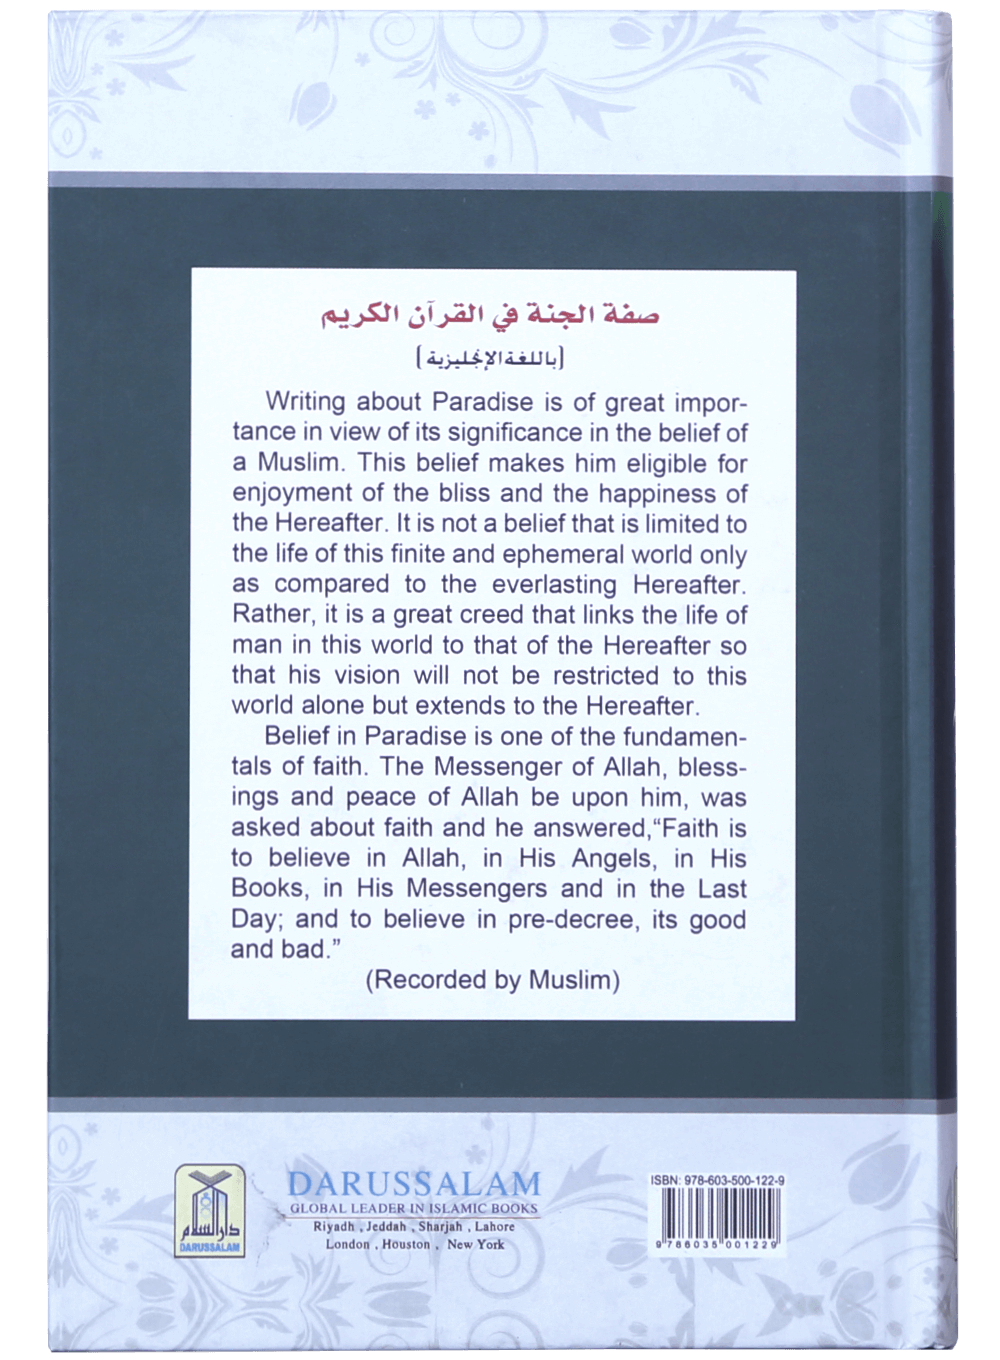 صفة الجنة في القرآن الكريم
(باللغة الإنجليزية)
Writing about Paradise is of great impor-
tance in view of its significance in the belief of
a Muslim. This belief makes him eligible for
enjoyment of the bliss and the happiness of
the Hereafter. It is not a belief that is limited to
the life of this finite and ephemeral world only
as compared to the everlasting Hereafter.
Rather, it is a great creed that links the life of
man in this world to that of the Hereafter so
that his vision will not be restricted to this
world alone but extends to the Hereafter.
Belief in Paradise is one of the fundamen-
tals of faith. The Messenger of Allah, bless-
ings and peace of Allah be upon him, was
asked about faith and he answered,“Faith is
to believe in Allah, in His Angels, in His
Books, in His Messengers and in the Last
Day; and to believe in pre-decree, its good
and bad.”
(Recorded by Muslim)
دارالسلام
DARUSSALAM
DARUSSALAM
GLOBAL LEADER IN ISLAMIC BOOKS
Riyadh , Jeddah , Sharjah , Lahore
London , Houston , New York
ISBN: 978-603-500-122-9
9 786035 001229